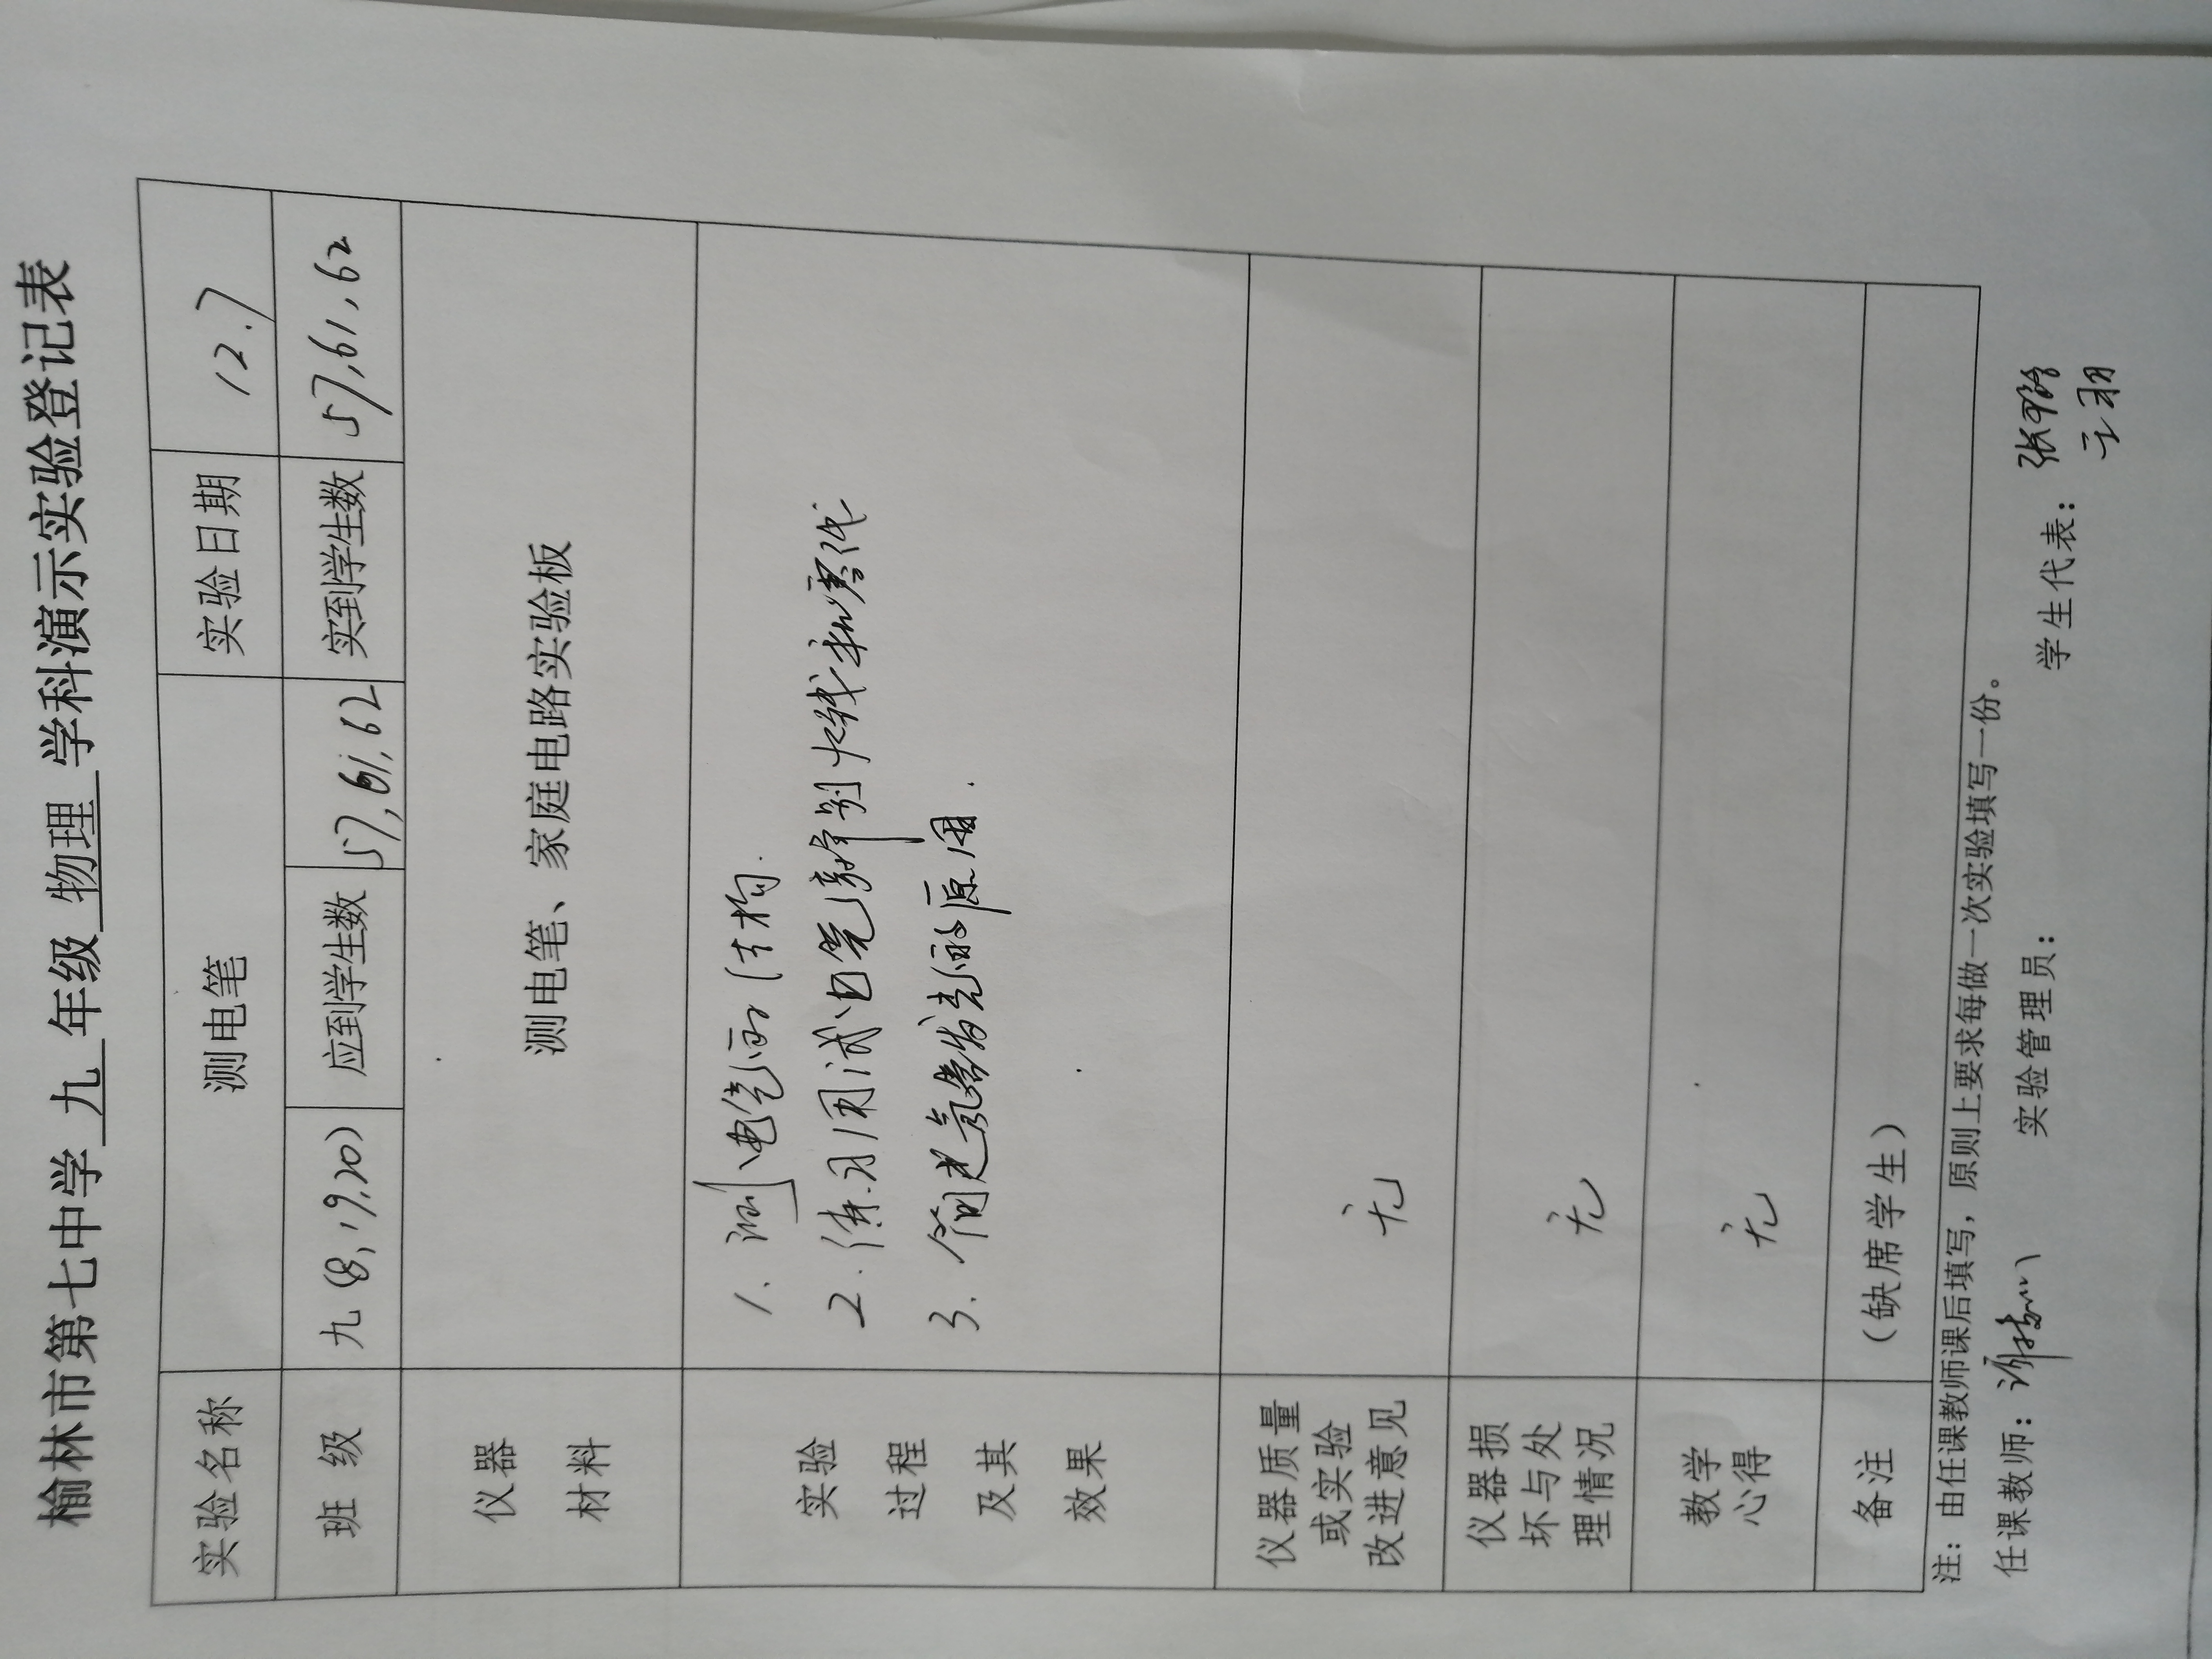 榆林市第七中学 九 年级 物理 学科演示实验登记表
实验名称 测电笔 实验日期 12.7
班 级 九(8,19,20) 应到学生数 57,61,62 实到学生数 57,61,62
仪器材料 测电笔、家庭电路实验板
实验过程及其效果
1. 测电笔的结构.
2. 练习用试电笔辨别火线和零线
3. 简述氖管发光的原因.
仪器质量或实验改进意见 无
仪器损坏与处理情况 无
教学心得 无
备注 (缺席学生)
注：由任课教师课后填写，原则上要求每做一次实验填写一份。
任课教师： 实验管理员： 学生代表：